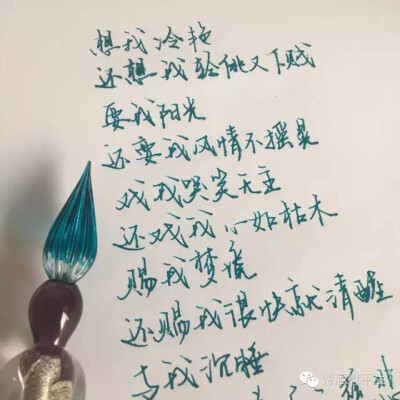 想我冷艳
还想我轻佻又下贱
要我阳光
还要我风情不摇晃
戏我哭笑无主
还戏我心如枯木
赐我梦境
还赐我很快就清醒
与我沉睡